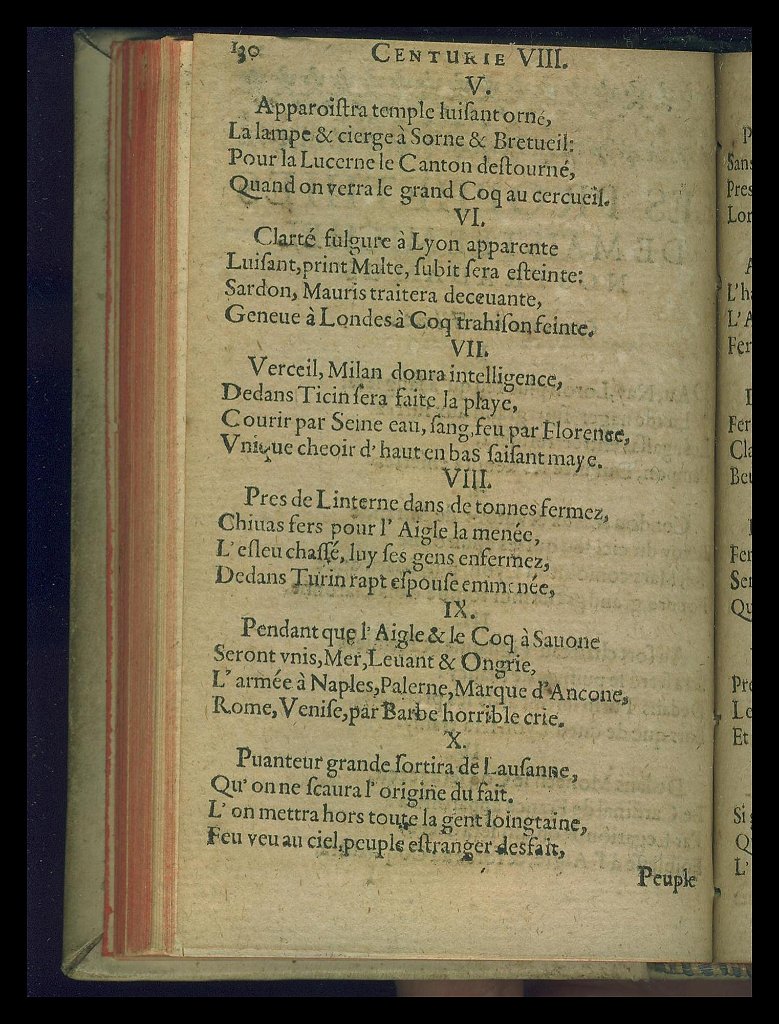 130 CENTURIE VIII.
V.
Apparoiſtra temple luiſant orné,
La lampe & cierge à Sorne & Bretueil:
Pour la Lucerne le Canton deſtourné,
Quand on verra le grand Coq au cercueil.
VI.
Clarté fulgure à Lyon apparente
Luiſant, print Malte, ſubit ſera eſteinte:
Sardon, Mauris traitera deceuante,
Geneue à Londes à Coq trahiſon feinte.
VII.
Verceil, Milan donra intelligence,
Dedans Ticin ſera faite la playe,
Courir par Seine eau, ſang, feu par Florence,
Vnique cheoir d'haut en bas faiſant maye.
VIII.
Pres de Linterne dans de tonnes fermez,
Chiuas fers pour l'Aigle la menée,
L'eſleu chaſſé, luy ſes gens enfermez,
Dedans Turin rapt eſpouſe emmenée,
IX.
Pendant que l'Aigle & le Coq à Sauone
Seront vnis, Mer, Leuant & Ongrie,
L'armée à Naples, Palerne, Marque d'Ancone,
Rome, Veniſe, par Barbe horrible crie.
X.
Puanteur grande ſortira de Lauſanne,
Qu'on ne ſcaura l'origine du fait.
L'on mettra hors toute la gent loingtaine,
Feu veu au ciel, peuple eſtranger desfait,
Peuple
P
Sans
Pres
Lor
L'h
L'A
Fer
Fer
Cla
Fer
Qu
Pre
Et
Si
Q
L'